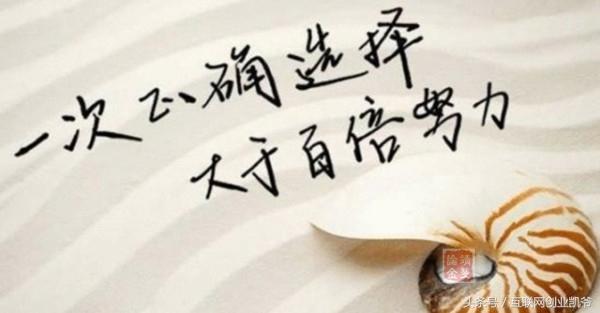 一次正确选择
大于百倍努力
头条号/互联网创业凯爷